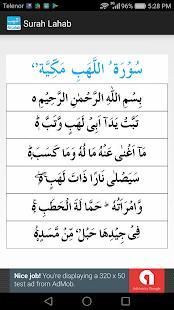 Telenor 5:28 PM
Surah Lahab
سُوْرَةُ اللَّهَبِ مَكِّيَّةٌ
بِسْمِ اللهِ الرَّحْمٰنِ الرَّحِيْمِ ۝
تَبَّتْ يَدَآ اَبِيْ لَهَبٍ وَّتَبَّ ۝
مَآ اَغْنٰى عَنْهُ مَا لُهٗ وَ مَا كَسَبَ ۝
سَيَصْلٰى نَارًا ذَاتَ لَهَبٍ ۝
وَّامْرَاَتُهٗ ۭ حَمَّا لَةَ الْحَطَبِ ۝
فِيْ جِيْدِهَا حَبْلٌ مِّنْ مَّسَدٍ ۝
Nice job! You're displaying a 320 x 50
test ad from AdMob.
AdMob by Google